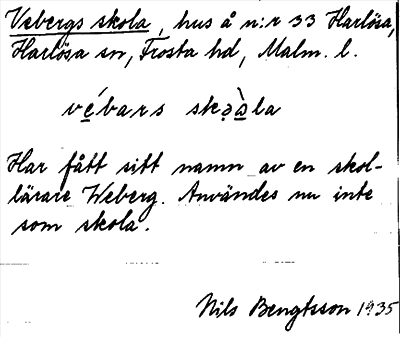 Vebergs skola, hus å n:r 33 Harlösa,
Harlösa sn, Frosta hd, Malm. l.
vé̲bars skə̀a̲la
Har fått sitt namn av en skol-
lärare Weberg. Användes nu inte
som skola.
Nils Bengtsson 1935